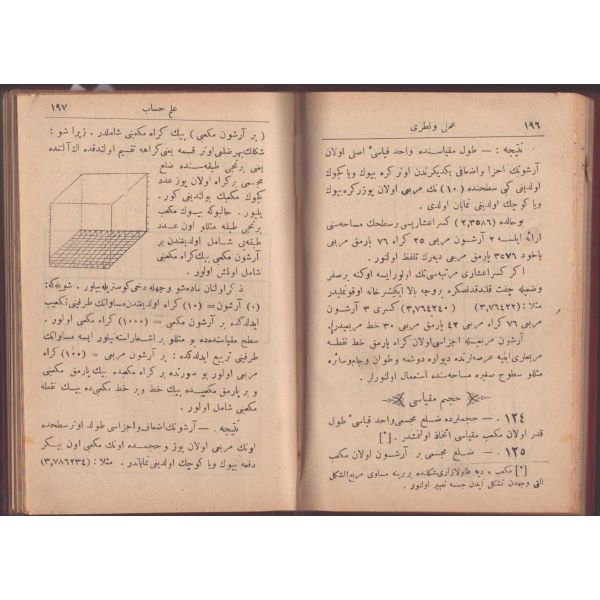 ١٩٦ عملی و نظری
نتیجه : — طول مقیاسنده واحد قیاسیء اصلی اولان
آرشونك اجزا واضعافی یكدیكرندن اونر كره بیوك ویا كچوك
اولدیغی كبی سطحنده (١٠) نك مربعی اولان یوزر كره بیوك
ویا كوچك اولدیغی نمایان اولدی .
بو حالده (٢,٣٥٨٦) كسر اعشاریسی بر سطحك مساحه‌سنی
ارائه ایلسه ٢ آرشون مربعی ٢٥ كراه ٧٦ پارمق مربعی
یاخود ٣٥٧٦ پارمق مربعی دیه‌رك تلفظ اولنور .
اكر كسر اعشاری مرتبه‌سی تك اولور ایسه اوكنه بر صفر
وضعیله چفت قلندقدنصكره بروجه بالا ایكیشر خانه اوقونملیدر
مثلا : (٣,٧٦٤٢٢) (٣,٧٦٤٢٤٠) كسری ٣ آرشون
مربعی ٧٦ كراه مربعی ٤٢ پارمق مربعی ٣٠ خط مربعیدر .
آرشون مربعیله اجزاسی اولان كراه پارمق خط نقطه
مربعلری ابنیه عرصه‌لرنده دیواره دوشمه وطوان وجام وسائره
مثللو سطوح صغیره مساحه‌سنده استعمال اولنورلر .
حجم مقیاسی
١٢٤ . — حجملرده ضلع مجسمی واحد قیاسیء طول
قدر اولان مكعب مقیاسی اتخاذ اولنمشدر . [*]
١٢٥ . — ضلع مجسمی بر آرشون اولان مكعب
[*] مكعب ه دیه طاولازاری شكلنده برینه مساوی مربع الشكل
التی وجهدن تشكل ایدن جسمه تعبیر اولنور .
علم حساب ١٩٧
( بر آرشون مكعبی ) بیك كراه مكعبنی شاملدر . زیرا شو :
شكلك بهر ضلعی اونر قسمه یعنی كراهه تقسیم اولندقده اك آلتنده
یعنی برنجی طبقه‌سنده ضلع
مجسمی بر كراه اولان یوز عدد
كچوك مكعبك بولندیغی كور-
یلیور . حالبوكه بیوك مكعب
برنجی طبقه مثللو اون عدد
طبقه‌یی شامل اولدیغندن بر
آرشون مكعبی بیك كراه مكعبنی
شامل اولمش اولور .
ذكر اولنان ماده شو وجهله دخی كوستریله‌بیلور . شویله‌كه :
(١) آرشون = (١٠) كراه اولدیغندن مساواتك طرفینی تكعیب
ایدلدكده بر آرشون مكعبی = (١٠٠٠) كراه مكعبی اولور .
سطح مقیاسنده‌ده بو مثللو بر اشعار استه‌نیلور ایسه مساواتك
طرفینی تربیع ایدلدكده : بر آرشون مربعی = (١٠٠) كراه
مربعی اولور بو صورتده بر كراه مكعبده بیك پارمق مكعبی
و بر پارمق مكعبیسده بیك خط و بر خط مكعبی‌ده بیك نقطه
مكعبی شامل اولور .
نتیجه . — آرشونك اضعاف واجزاسی طولده اونر سطحده
اونك مربعی اولان یوز وحجمده اونك مكعبی اون بیكر
دفعه بیوك ویا كوچك اولدیغی نمایاندر . مثلا : (٣,٧٨٦٢٣٤)